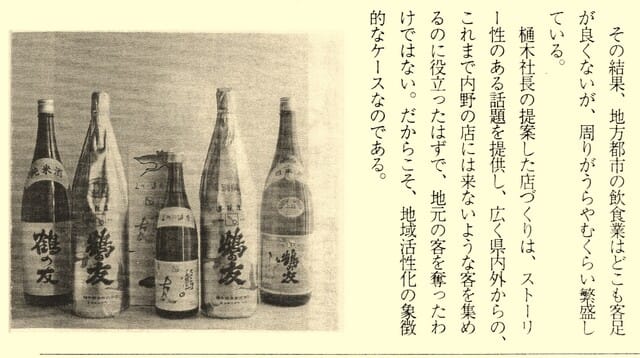 その結果、地方都市の飲食業はどこも客足
が良くないが、周りがうらやむくらい繁盛し
ている。
樋木社長の提案した店づくりは、ストーリ
ー性のある話題を提供し、広く県内外からの、
これまで内野の店には来ないような客を集め
るのに役立ったはずで、地元の客を奪ったわ
けではない。だからこそ、地域活性化の象徴
的なケースなのである。
純米酒
鶴の友
鶴の友
鶴の友
鶴の友